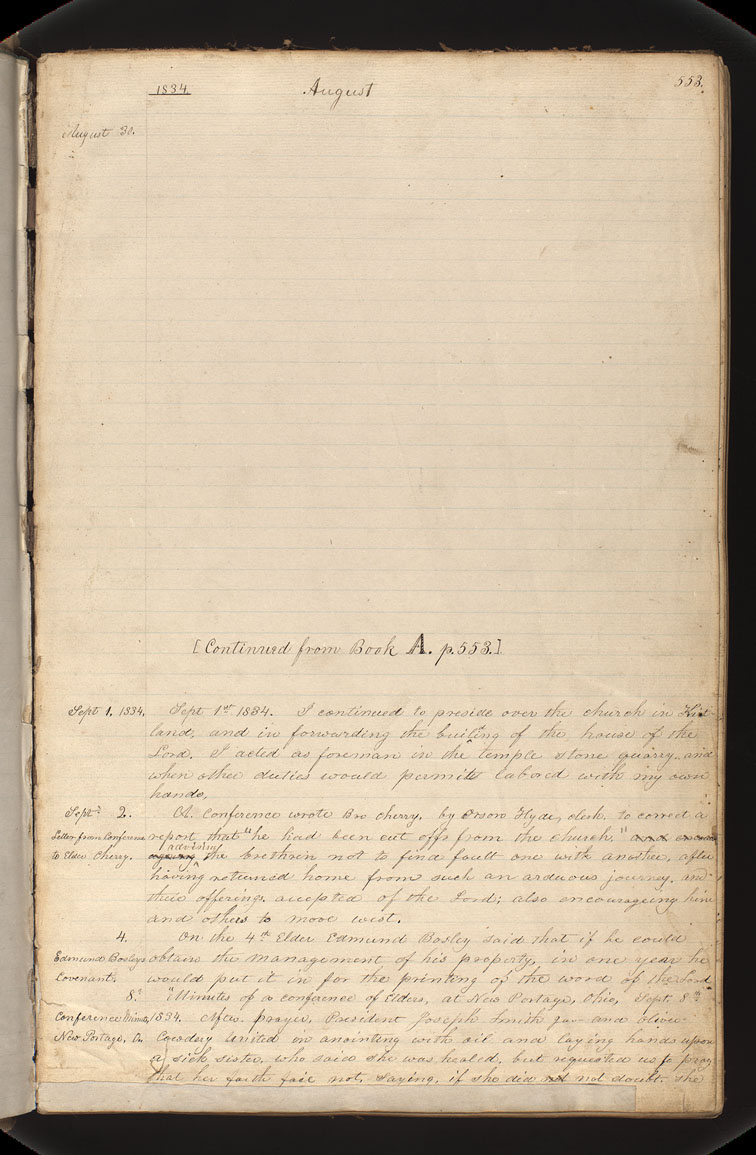 1834. August 553.
August 30.
[Continued from Book A. p.553.]
Sept 1. 1834. Sept 1st 1834. I continued to preside over the church in Kirt-
land, and in forwarding the builing of the house of the
Lord. I acted as foreman in the temple stone quarry. and
when other duties would permit labored with my own
hands.
Sept. 2. A Conference wrote Bro Cherry, by Orson Hyde, clerk. to correct a
Letter from Conference report that "he had been cut off from the church." and
to Elder Cherry. advising the brethren not to find fault one with another, after
having returned home from such an arduous journey. and
their offerings accepted of the Lord; also encourageing him
and others to move west.
4. On the 4th Elder Edmund Bosley said that if he could
Edmund Bosleys obtain the management of his property, in one year he
Covenant. would put it in for the printing of the word of the Lord
8. "Minutes of a conference of Elders, at New Portage, Ohio, Sept. 8th
Conference Minutes, 1834. After prayer, President Joseph Smith jun and Oliver
New Portage, O. Cowdery United in anointing with oil and laying hands upon
a sick sister, who said she was healed, but requested us to pray
that her faith fail not, saying, if she did not not doubt. she